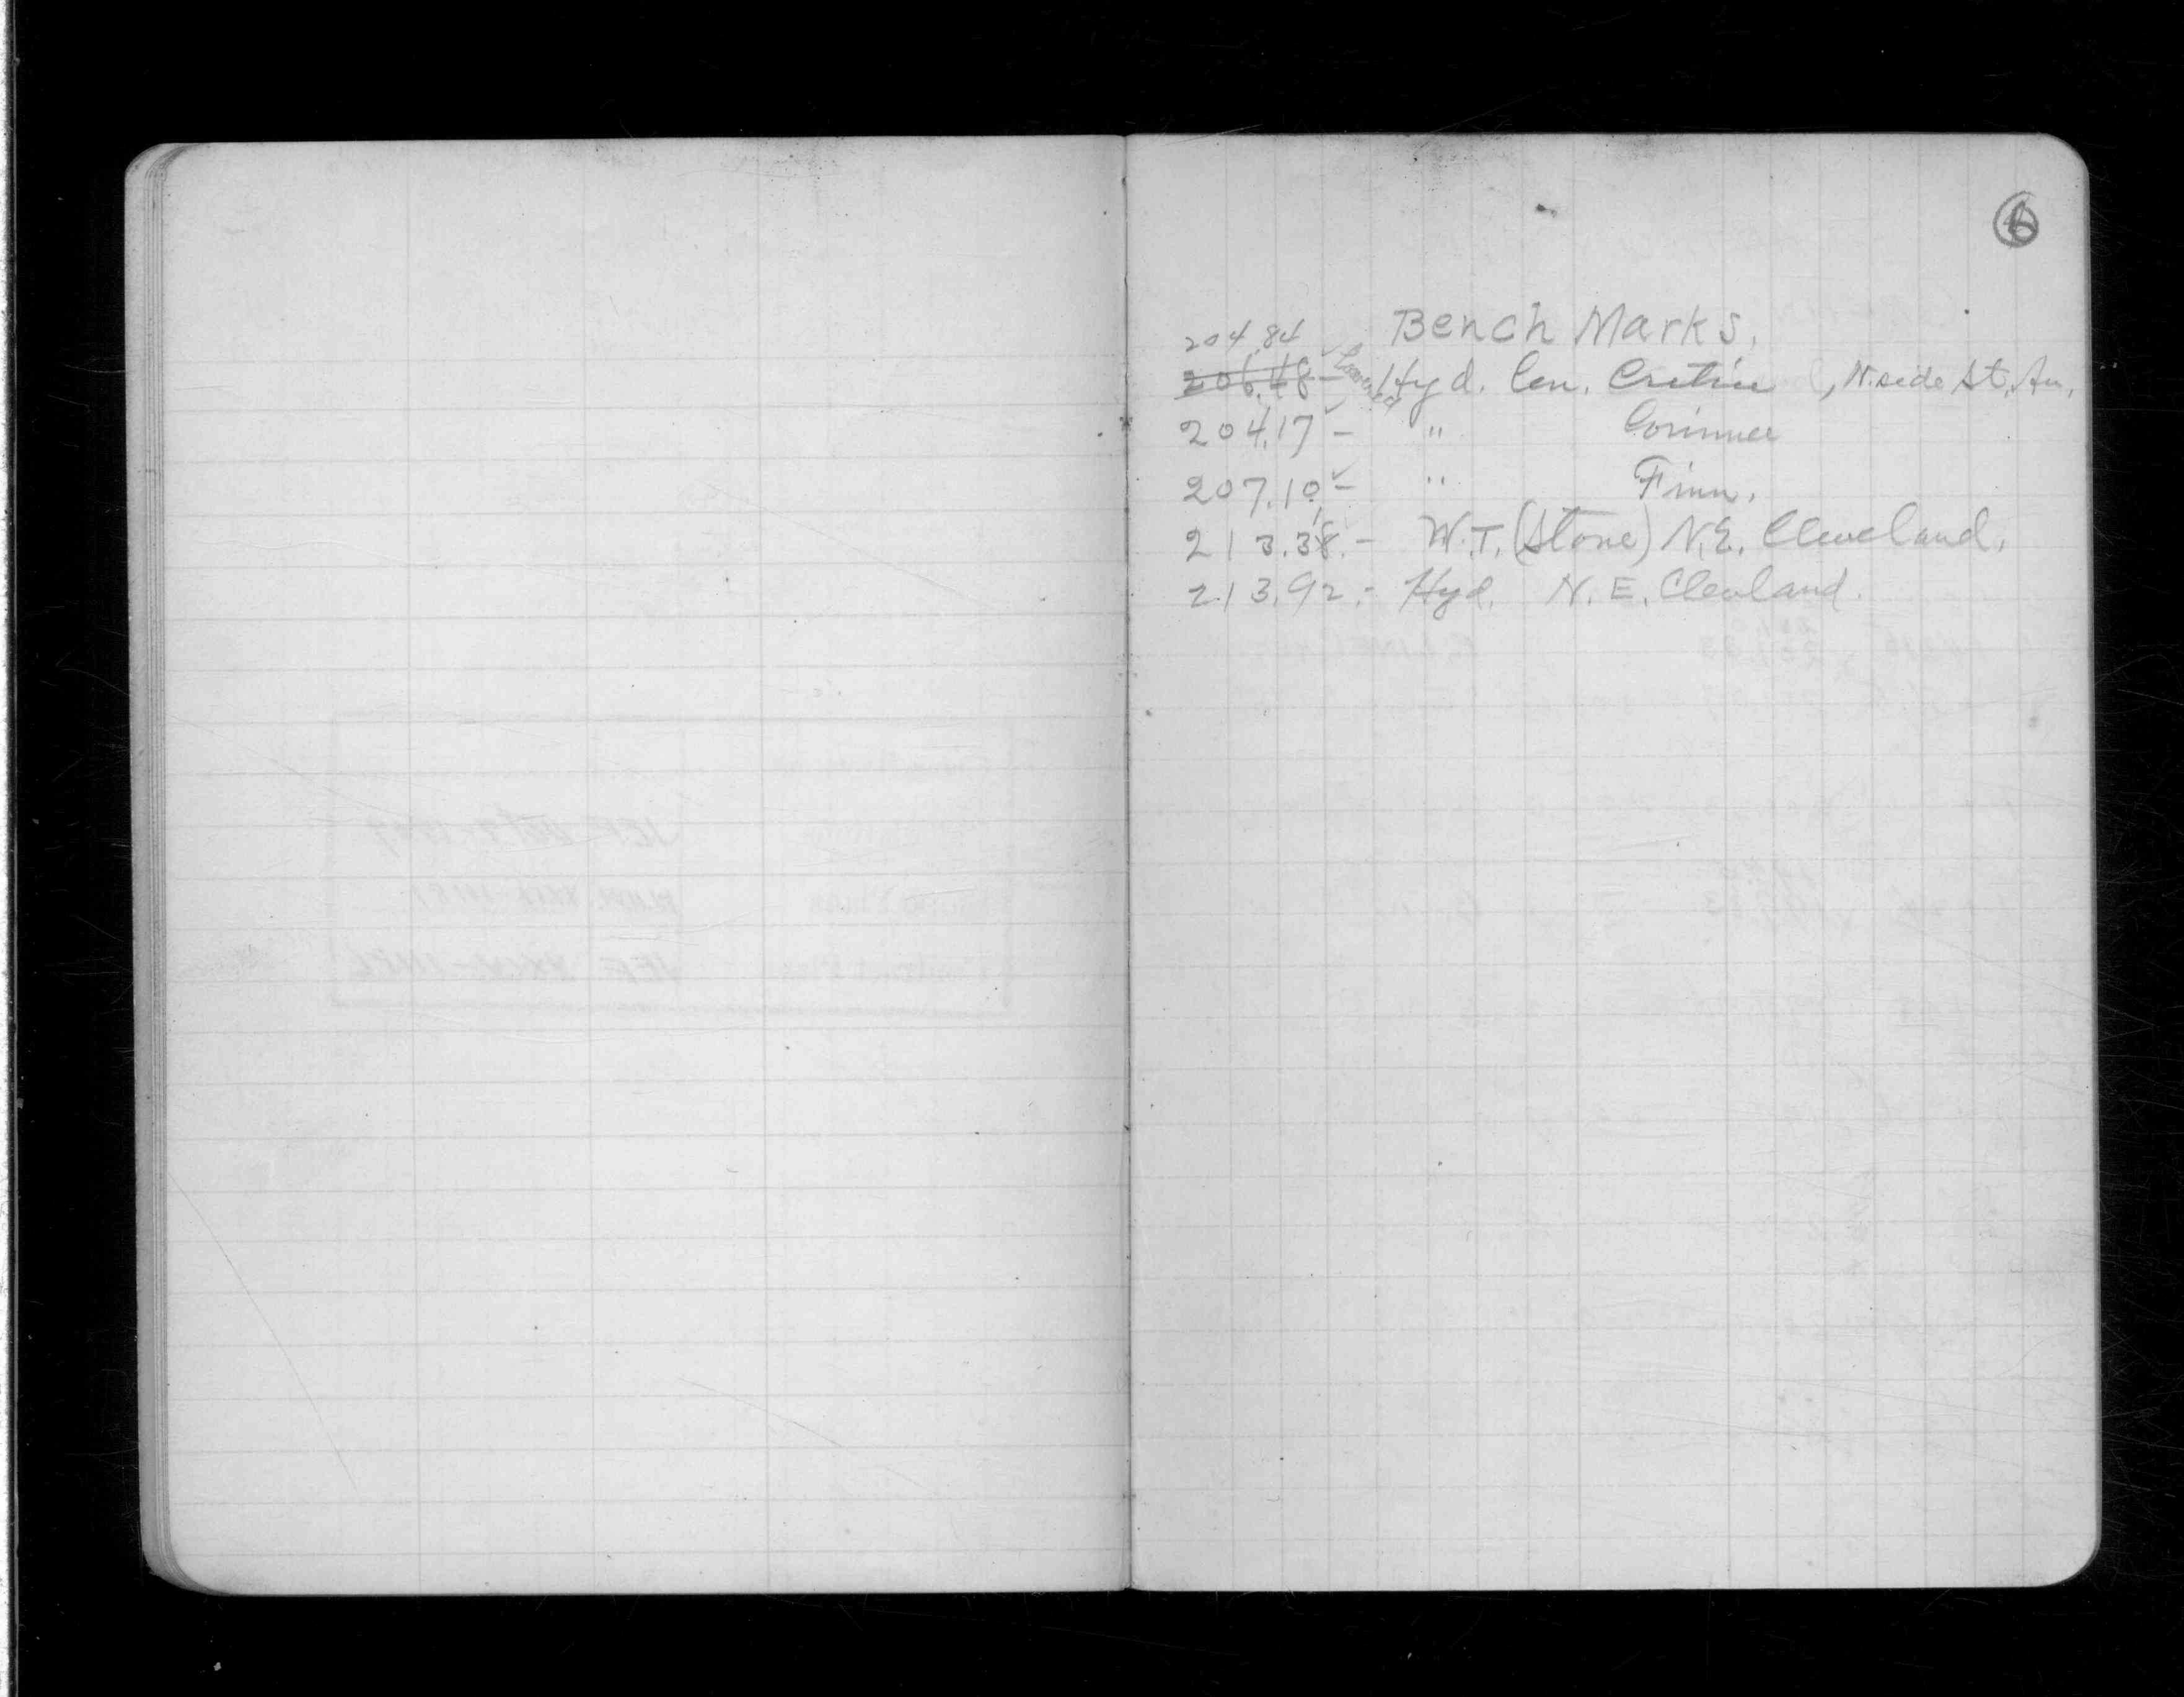 6
Bench Marks.
204.84
206.48 - Lowered Hyd. Cen. Cretin, N. side St. Av.
204.17 - " Corinne
207.10 - " Finn.
213.38. - W.T. (Stone) N.E. Cleveland.
213.92. - Hyd. N. E. Clevland.